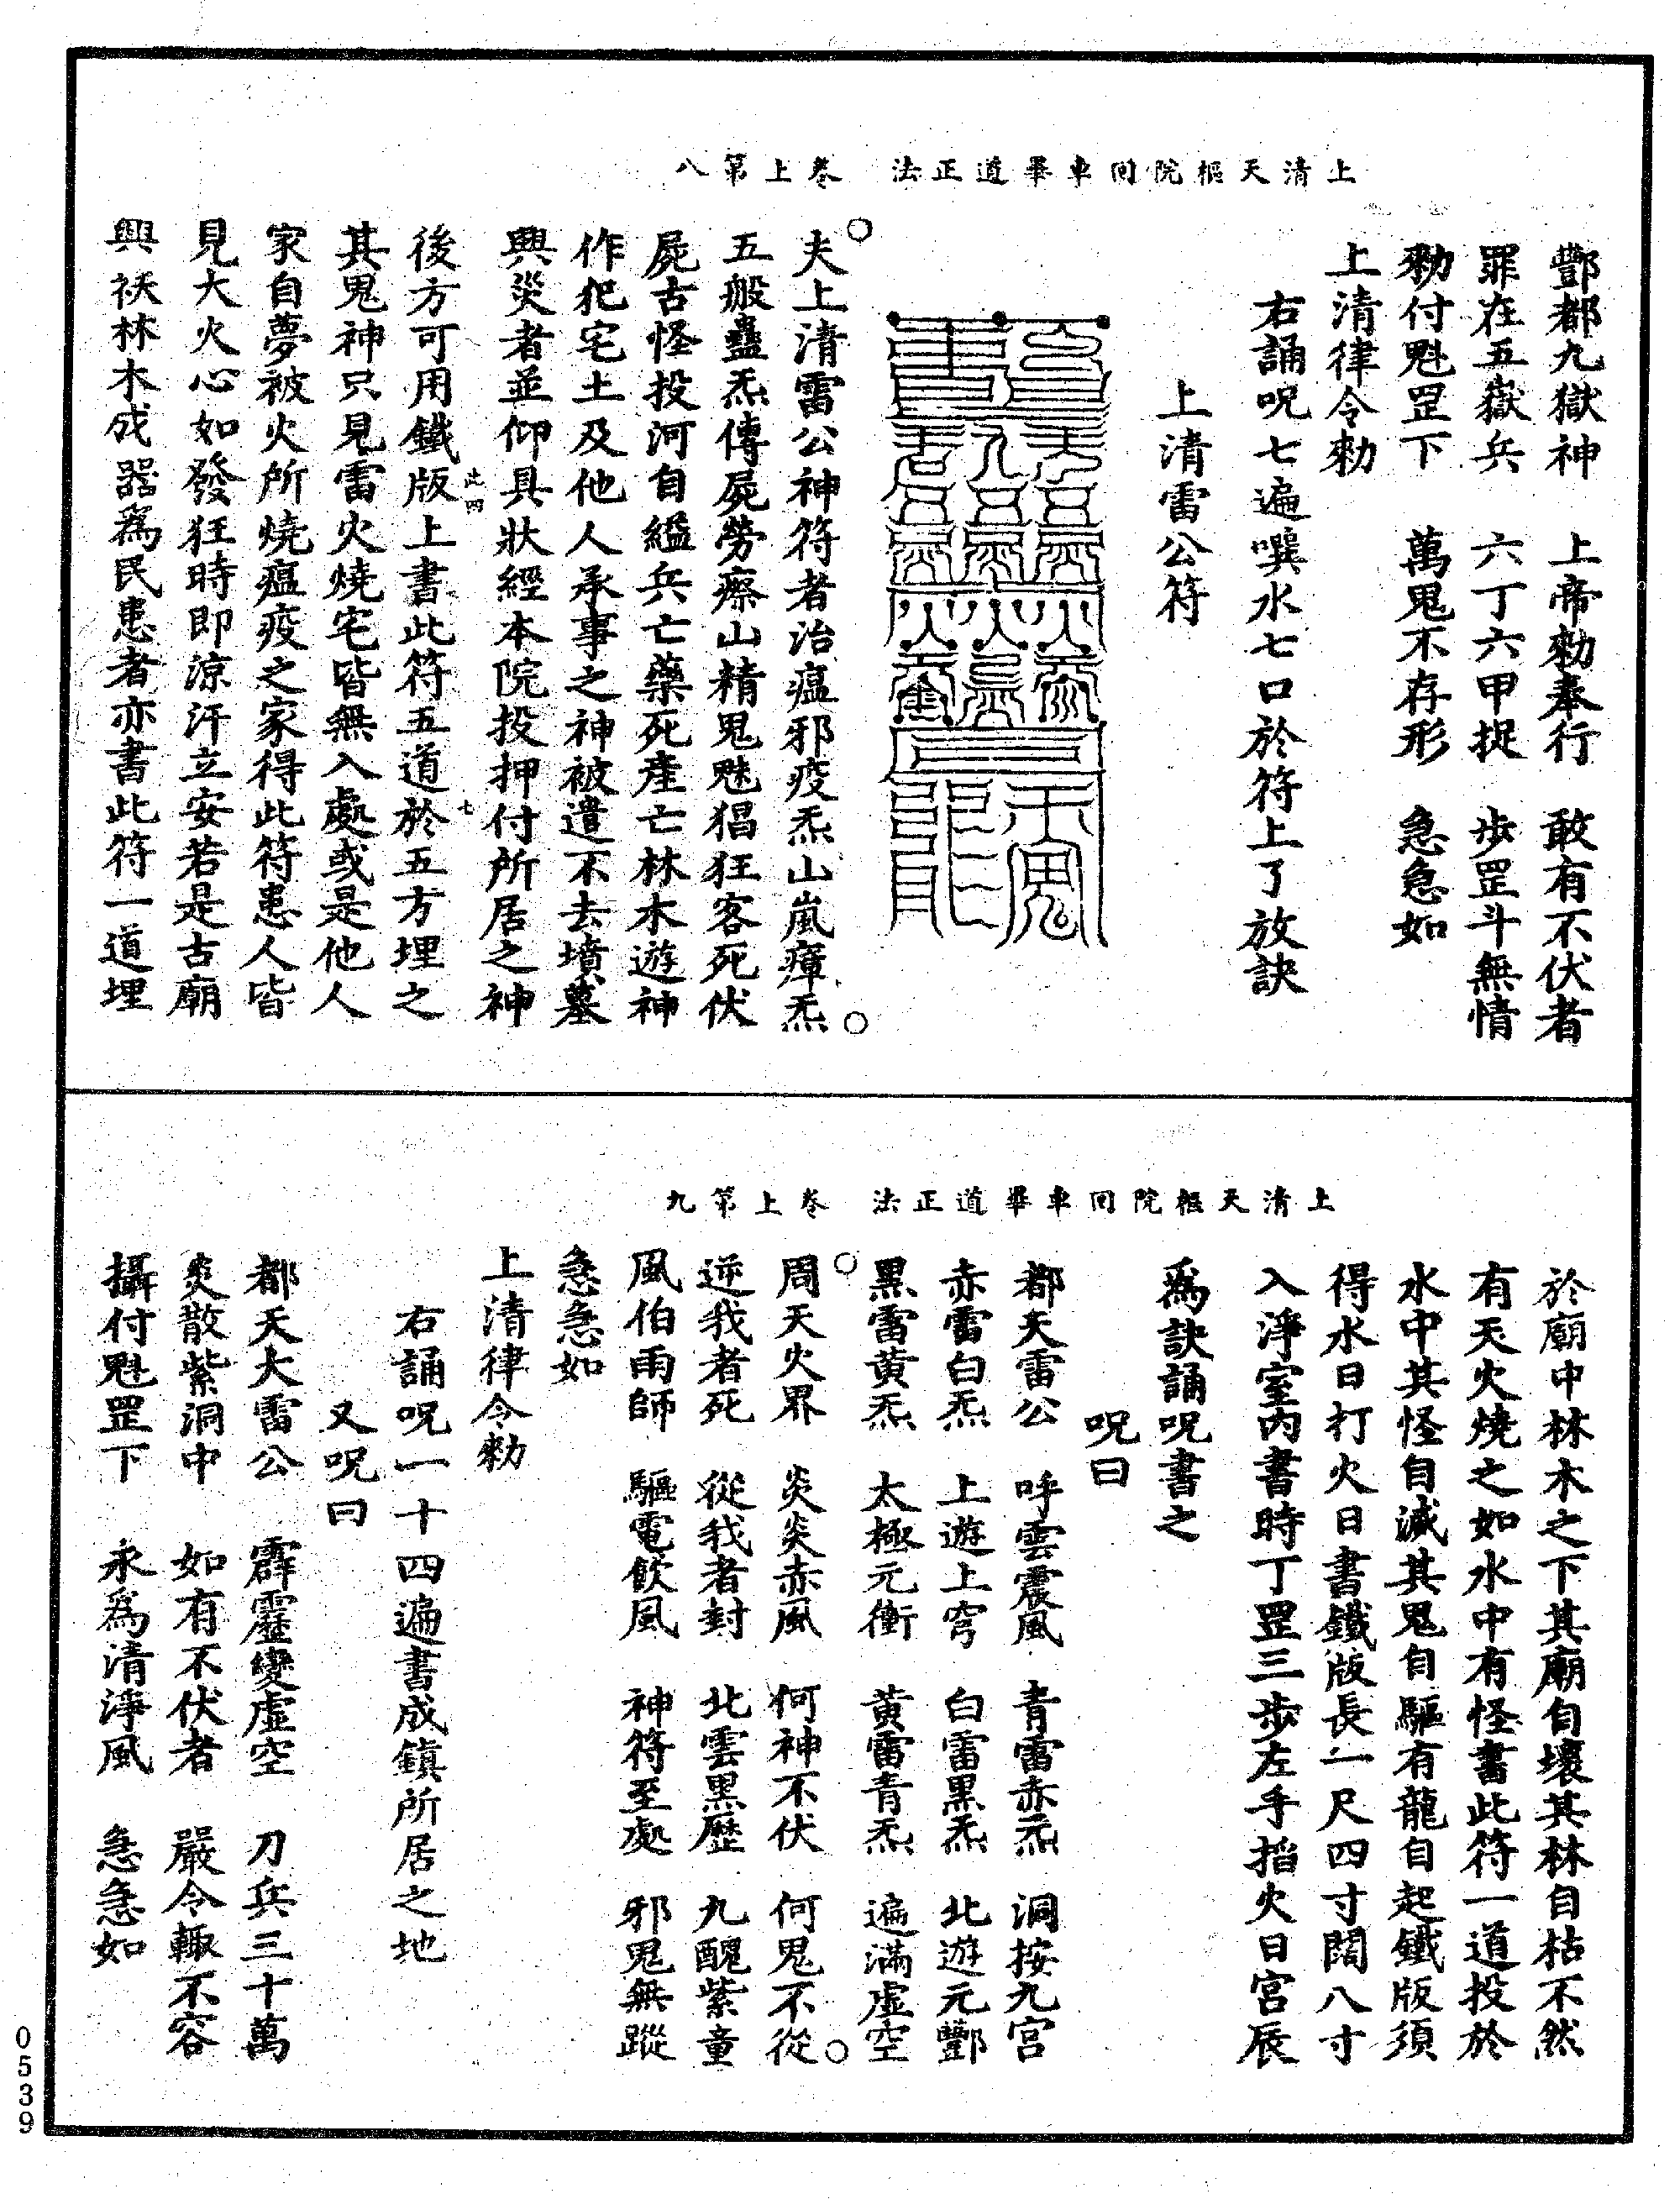 酆都九獄神　上帝勑奉行　敢有不伏者
罪在五嶽兵　六丁六甲捉　步罡斗無情
勑付魁罡下　萬鬼不存形　急急如
上清律令勑
右誦呪七遍噀水七口於符上了放訣
上清雷公符
上清天樞院回車畢道正法　卷上第八
夫上清雷公神符者治瘟邪疫炁山嵐瘴炁
五般蠱炁傳屍勞瘵山精鬼魅猖狂客死伏
屍古怪投河自縊兵亡藥死產亡林木遊神
作犯宅土及他人承事之神被遣不去墳墓
興災者並仰具狀經本院投押付所居之神
後方可用鐵版上書此符五道於五方埋之
此四
七
其鬼神只見雷火燒宅皆無入處或是他人
家自夢被火所燒瘟疫之家得此符患人皆
見大火心如發狂時即涼汗立安若是古廟
興祅林木成器爲民患者亦書此符一道埋
於廟中林木之下其廟自壞其林自枯不然
有天火燒之如水中有怪書此符一道投於
水中其怪自滅其鬼自驅有龍自起鐵版須
得水日打火日書鐵版長一尺四寸闊八寸
入淨室內書時丁罡三步左手掐火日宮辰
爲訣誦呪書之
呪曰
上清天樞院回車畢道正法　卷上第九
都天雷公　呼雲震風　青雷赤炁　洞按九宮
赤雷白炁　上遊上穹　白雷黑炁　北遊元酆
黑雷黄炁　太極元衝　黄雷青炁　遍滿虛空
周天火界　炎炎赤風　何神不伏　何鬼不從
逆我者死　從我者封　北雲黑歷　九醜紫童
風伯雨師　驅電飲風　神符至處　邪鬼無蹤
急急如
上清律令勑
右誦呪一十四遍書成鎮所居之地
又呪曰
都天大雷公　霹靂變虛空　刀兵三十萬
炎散紫洞中　如有不伏者　嚴令輙不容
攝付魁罡下　永爲清淨風　急急如
0539